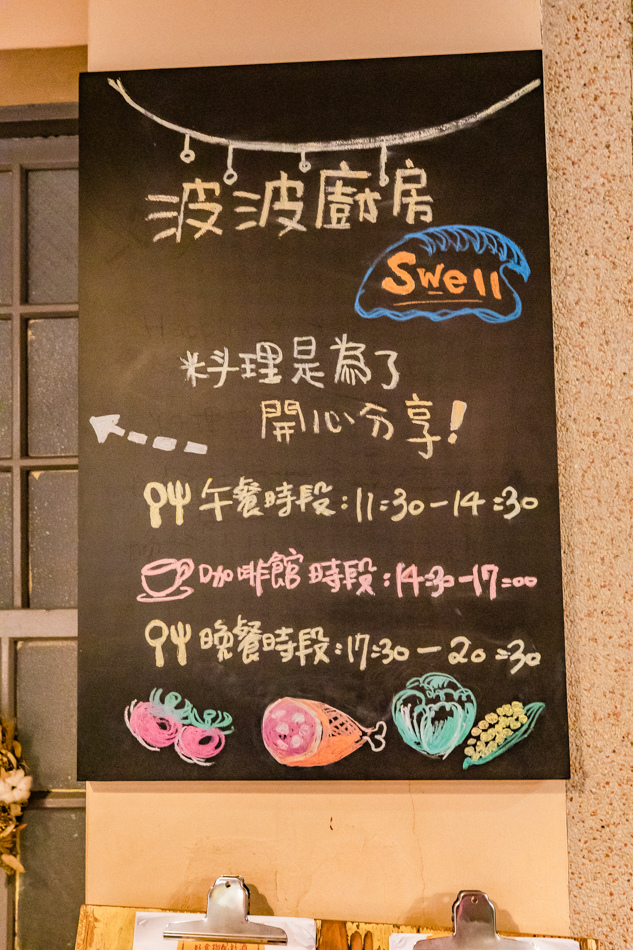 波波廚房
Swell
料理是為了
開心分享!
午餐時段:11:30-14:30
咖啡館時段:14:30-17:00
晚餐時段:17:30-20:30